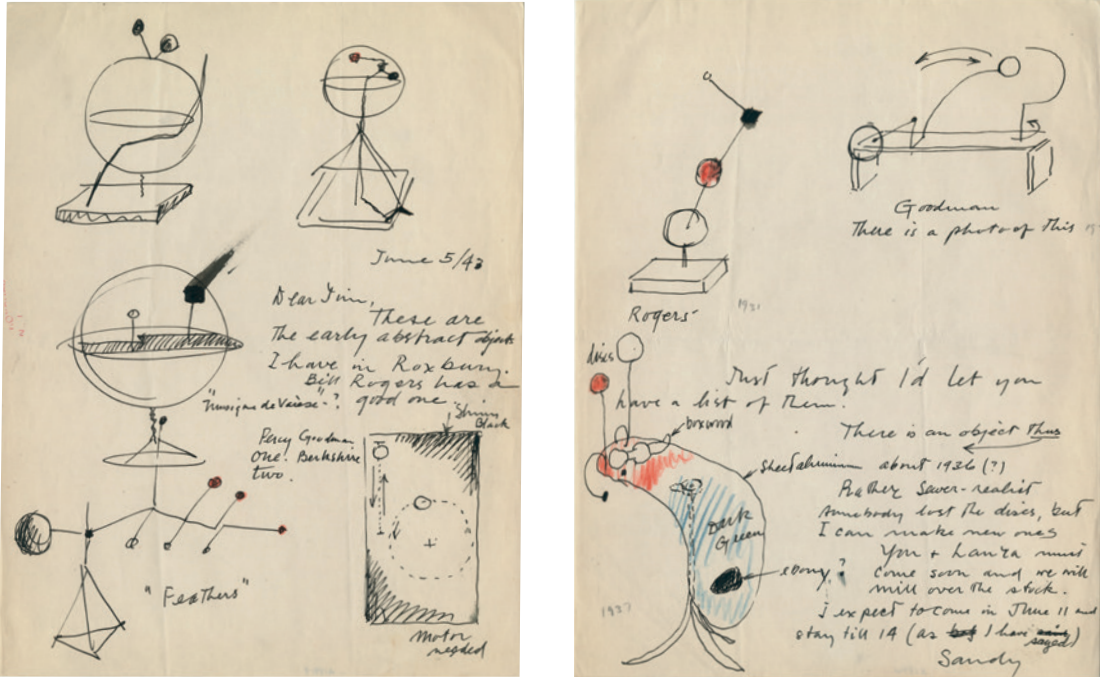 June 5/43
Dear Jim,
These are
the early abstract objects
I have in Roxbury.
Bill Rogers has a
good one
"Musique de Varèse"-?
Percy Goodman
one. Berkshire
two.
Shiny
Black
Motor
needed
"Feathers"
Goodman
There is a photo of this
Rogers'
1931
discs
Just thought I'd let you
have a list of them.
boxwood
There is an object thus
Sheet aluminum about 1936 (?)
Rather
somebody lost the discs, but
I can make new ones
Dark
Green
You + must
ebony?
come soon and we will
mill over the stock.
1937
I expect to come in June 11 and
stay till 14 (as I have
sayed)
Sandy